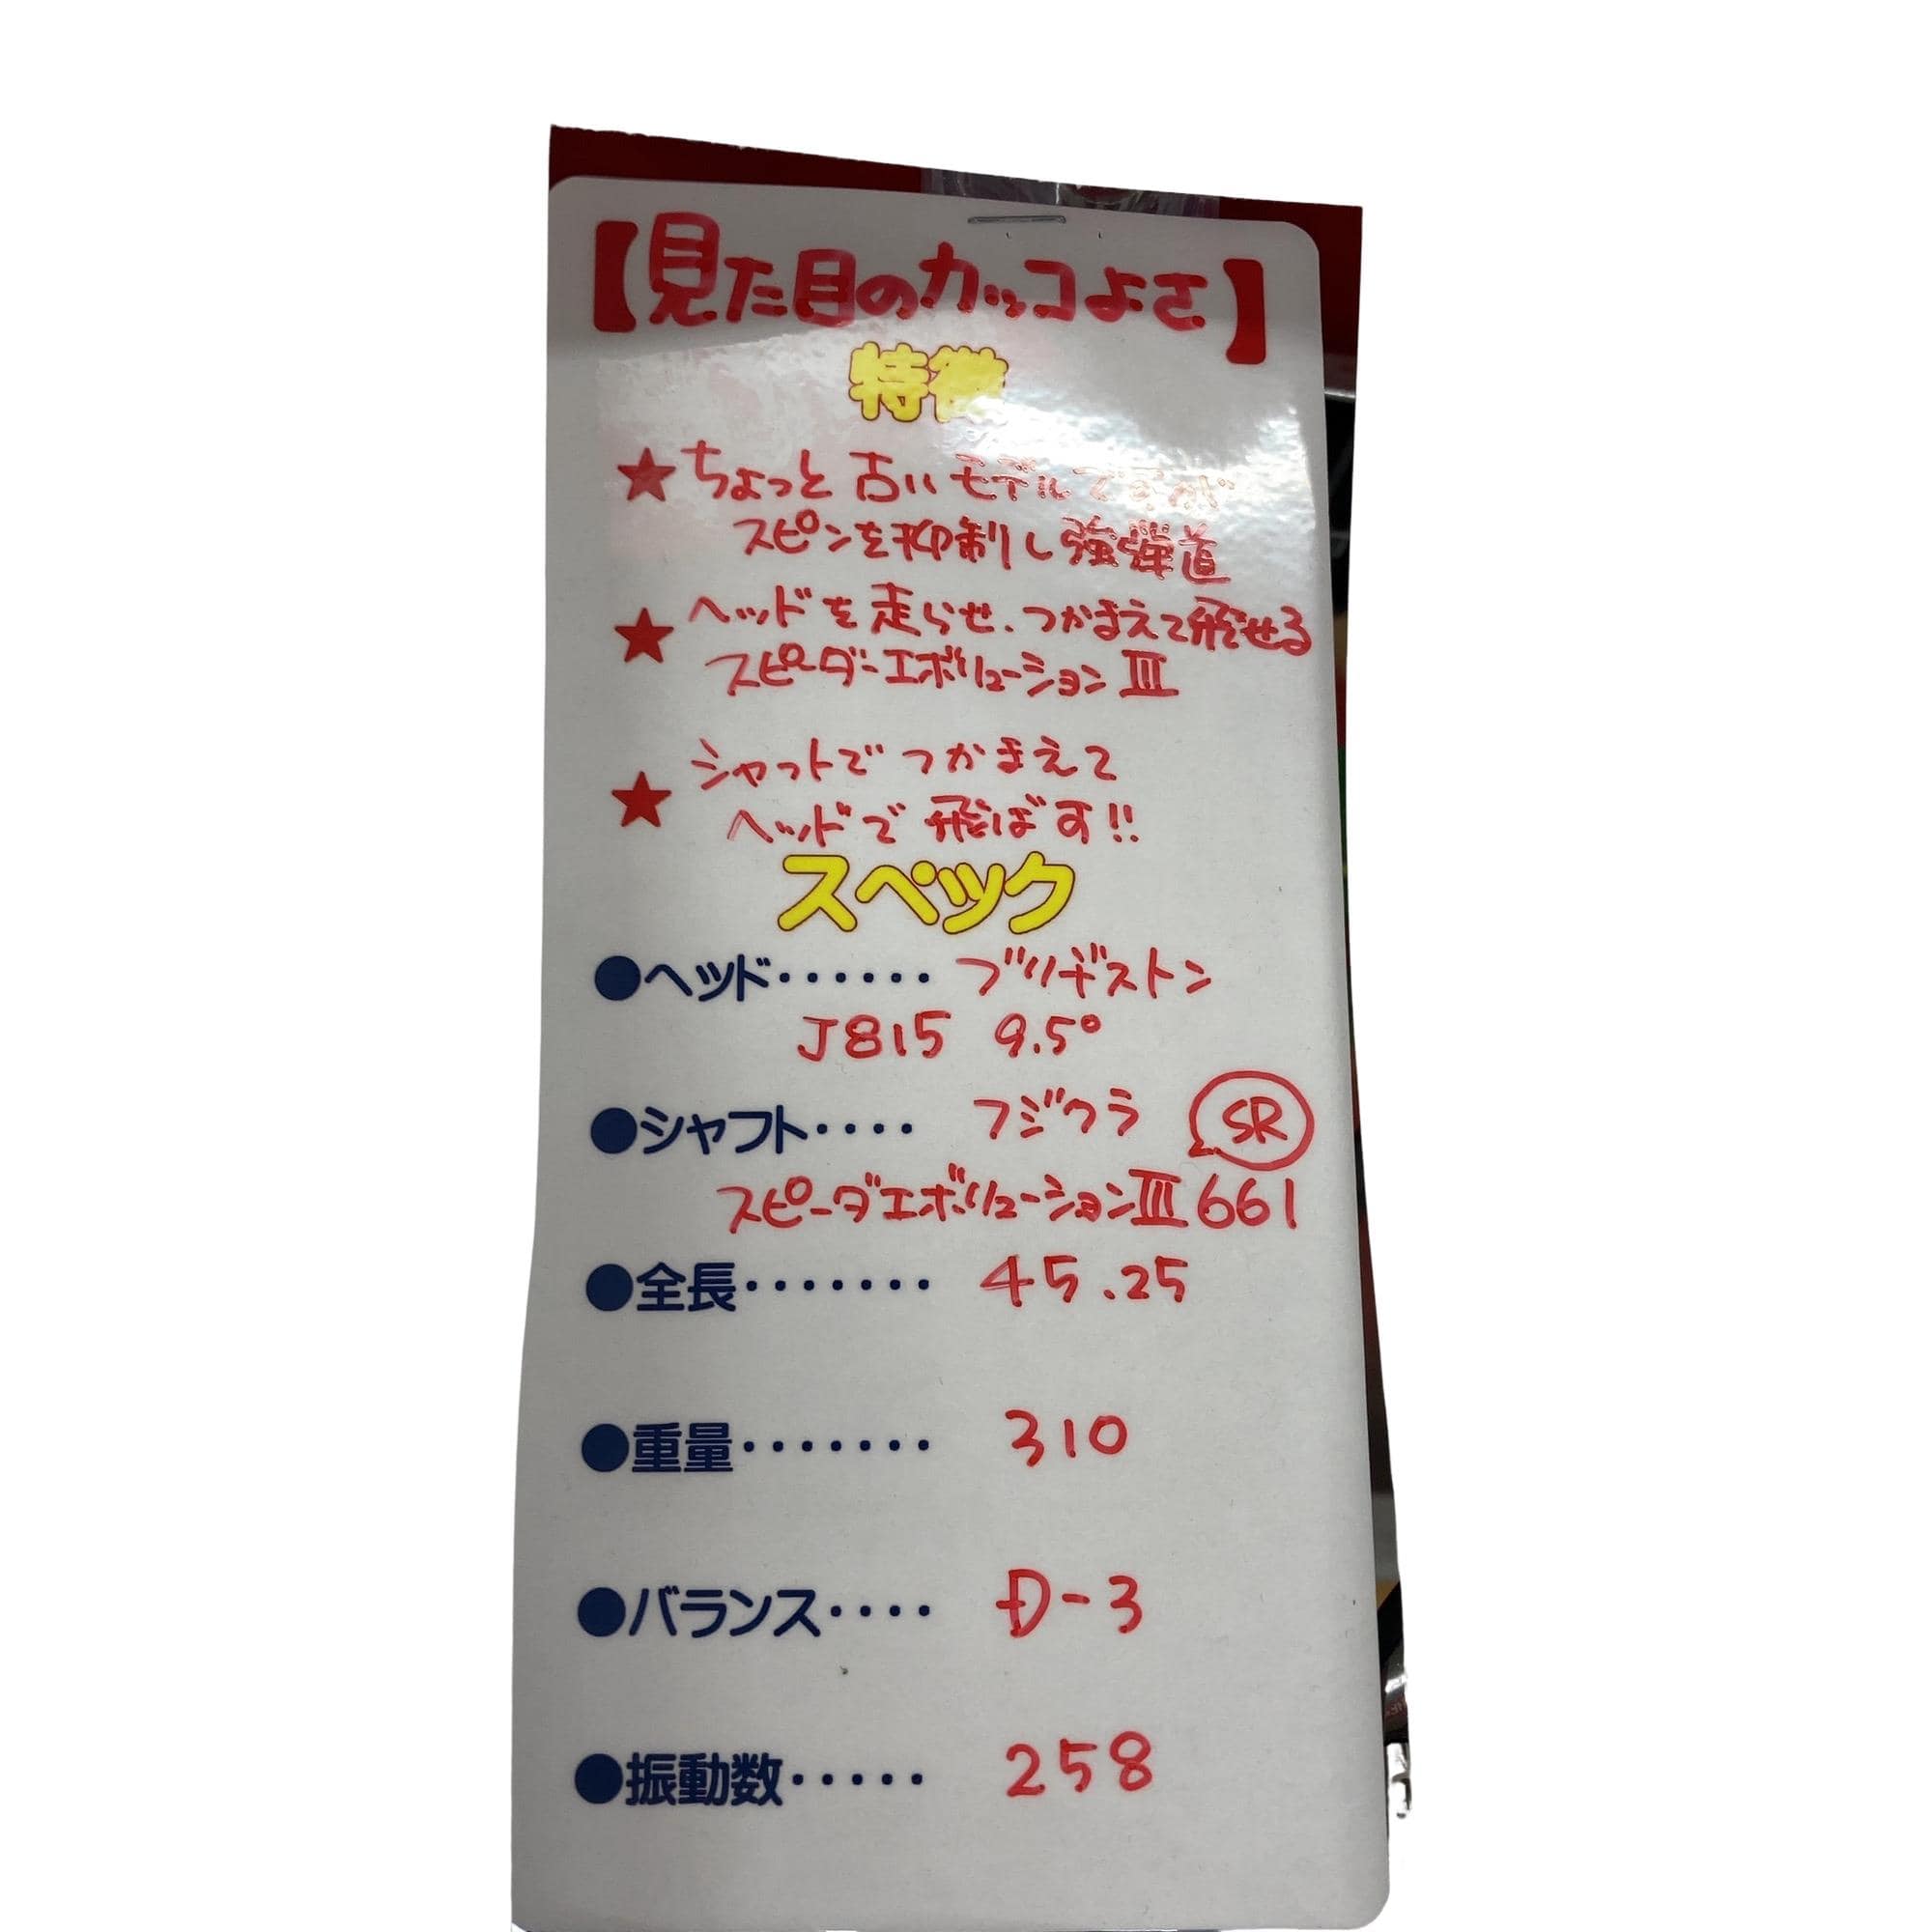 【見た目のカッコよさ】
特徴
★ちょっと古いモデルですが
スピンを抑制し強弾道
★ヘッドを走らせ、つかまえて飛せる
スピーダーエボリューションⅢ
★シャットでつかまえて
ヘッドで飛ばす!!
スペック
●ヘッド・・・・・・ブリヂストン
J815 9.5°
●シャフト・・・・フジクラ SR
スピーダエボリューションⅢ661
●全長・・・・・・・45.25
●重量・・・・・・・310
●バランス・・・・D-3
●振動数・・・・・258